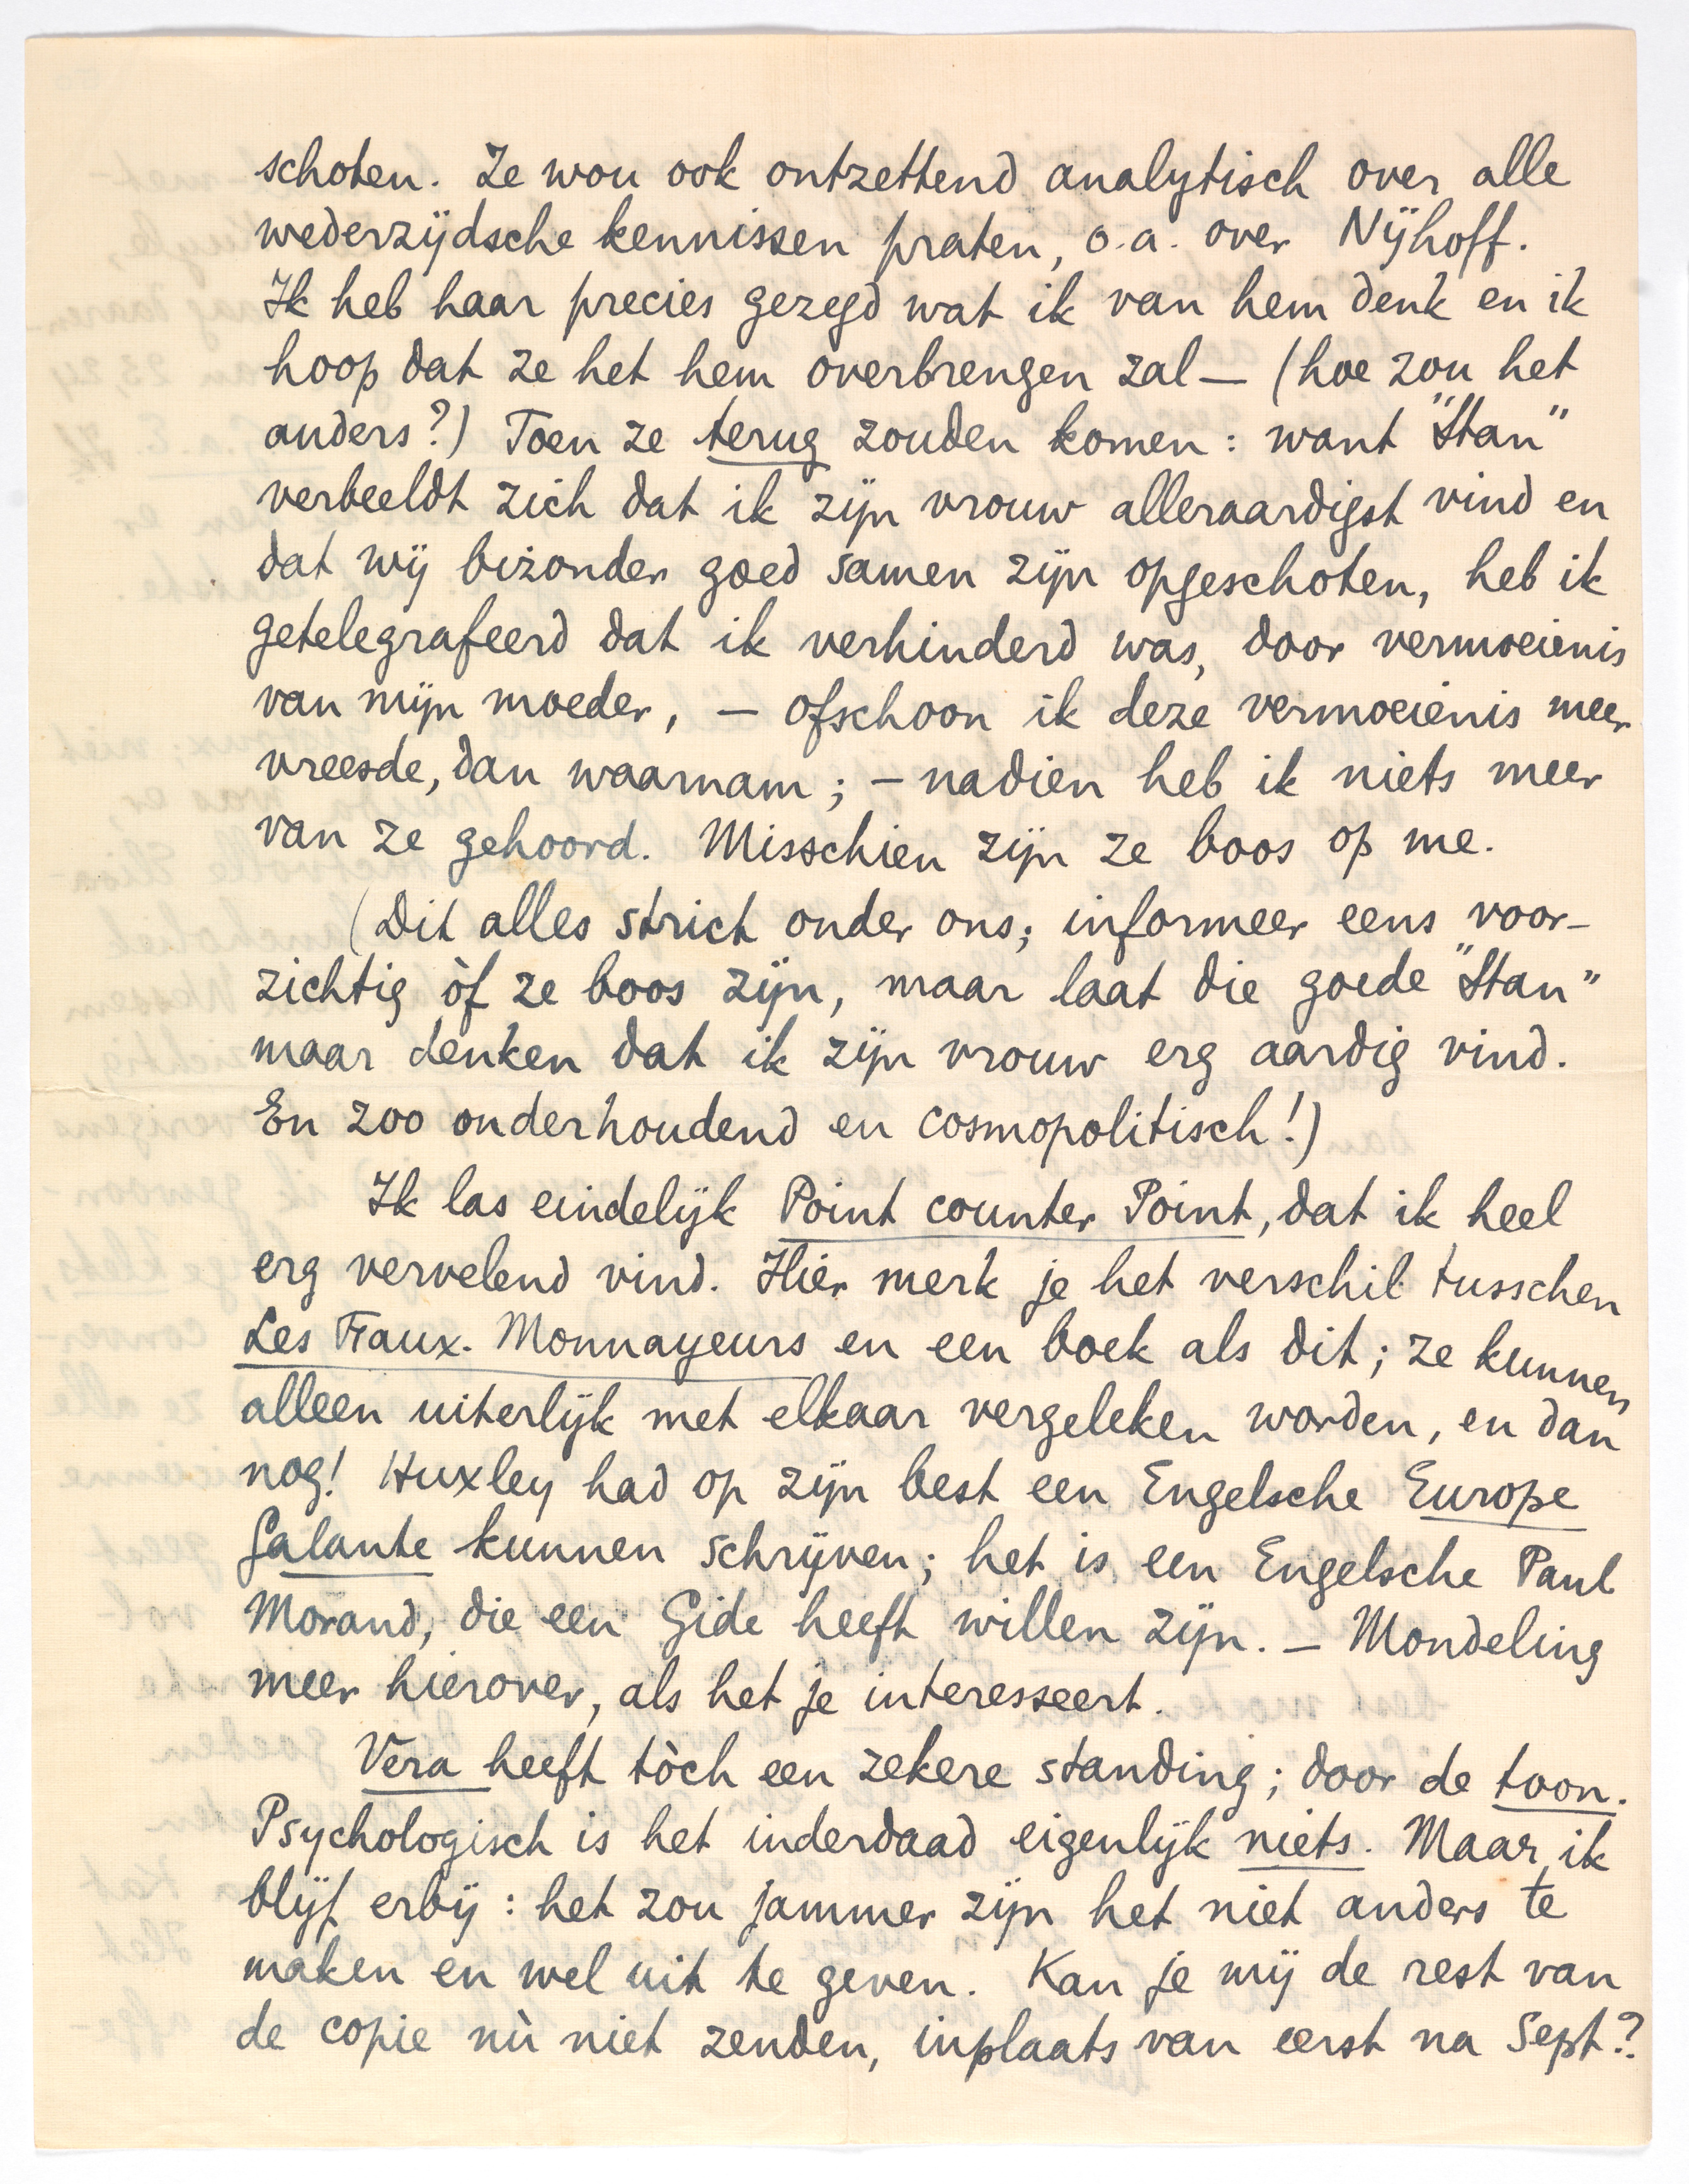 schoten. Ze wou ook ontzettend analytisch over alle
wederzijdsche kennissen praten, o.a. over Nijhoff.
Ik heb haar precies gezegd wat ik van hem denk en ik
hoop dat ze het hem overbrengen zal — (hoe zou het
anders?) Toen ze terug zouden komen: want "Stan"
verbeeldt zich dat ik zijn vrouw alleraardigst vind en
dat wij bizonder goed samen zijn opgeschoten, heb ik
getelegrafeerd dat ik verhinderd was, door vermoeienis
van mijn moeder, — ofschoon ik deze vermoeienis meer
vreesde, dan waarnam; — nadien heb ik niets meer
van ze gehoord. Misschien zijn ze boos op me.
(Dit alles strict onder ons; informeer eens voor-
zichtig òf ze boos zijn, maar laat die goede "Stan"
maar denken dat ik zijn vrouw erg aardig vind.
En zoo onderhoudend en cosmopolitisch!)
Ik las eindelijk Point counter Point, dat ik heel
erg vervelend vind. Hier merk je het verschil tusschen
Les Faux-Monnayeurs en een boek als dit; ze kunnen
alleen uiterlijk met elkaar vergeleken worden, en dan
nog! Huxley had op zijn best een Engelsche Europe
Galante kunnen schrijven; het is een Engelsche Paul
Morand, die een Gide heeft willen zijn. — Mondeling
meer hierover, als het je interesseert.
Vera heeft tòch een zekere standing; door de toon.
Psychologisch is het inderdaad eigenlijk niets. Maar ik
blijf erbij: het zou jammer zijn het niet anders te
maken en wel uit te geven. Kan je mij de rest van
de copie nù niet zenden, inplaats van eerst na Sept?